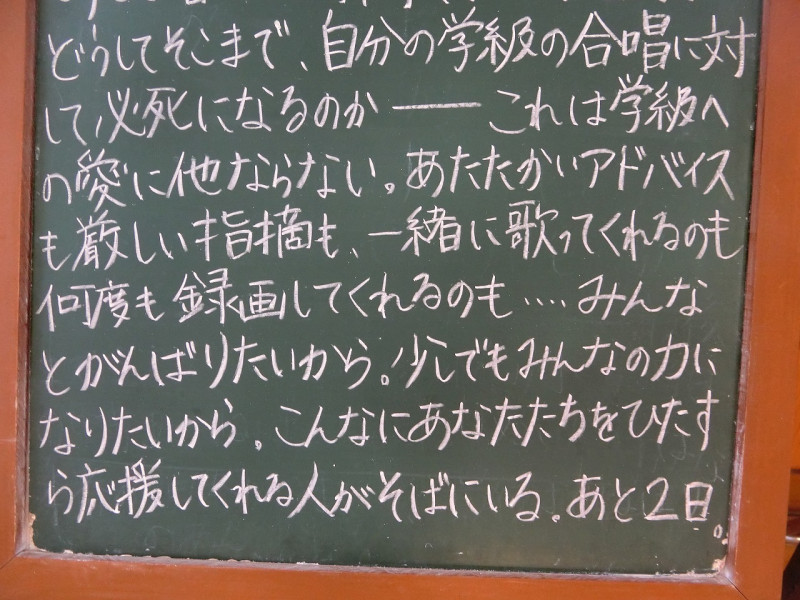 どうしてそこまで、自分の学級の合唱に対
して必死になるのか ── これは学級へ
の愛に他ならない。あたたかいアドバイス
も厳しい指摘も、一緒に歌ってくれるのも
何度も録画してくれるのも‥‥みんな
とがんばりたいから。少しでもみんなの力に
なりたいから。こんなにあなたたちをひたす
ら応援してくれる人がそばにいる。あと2日。